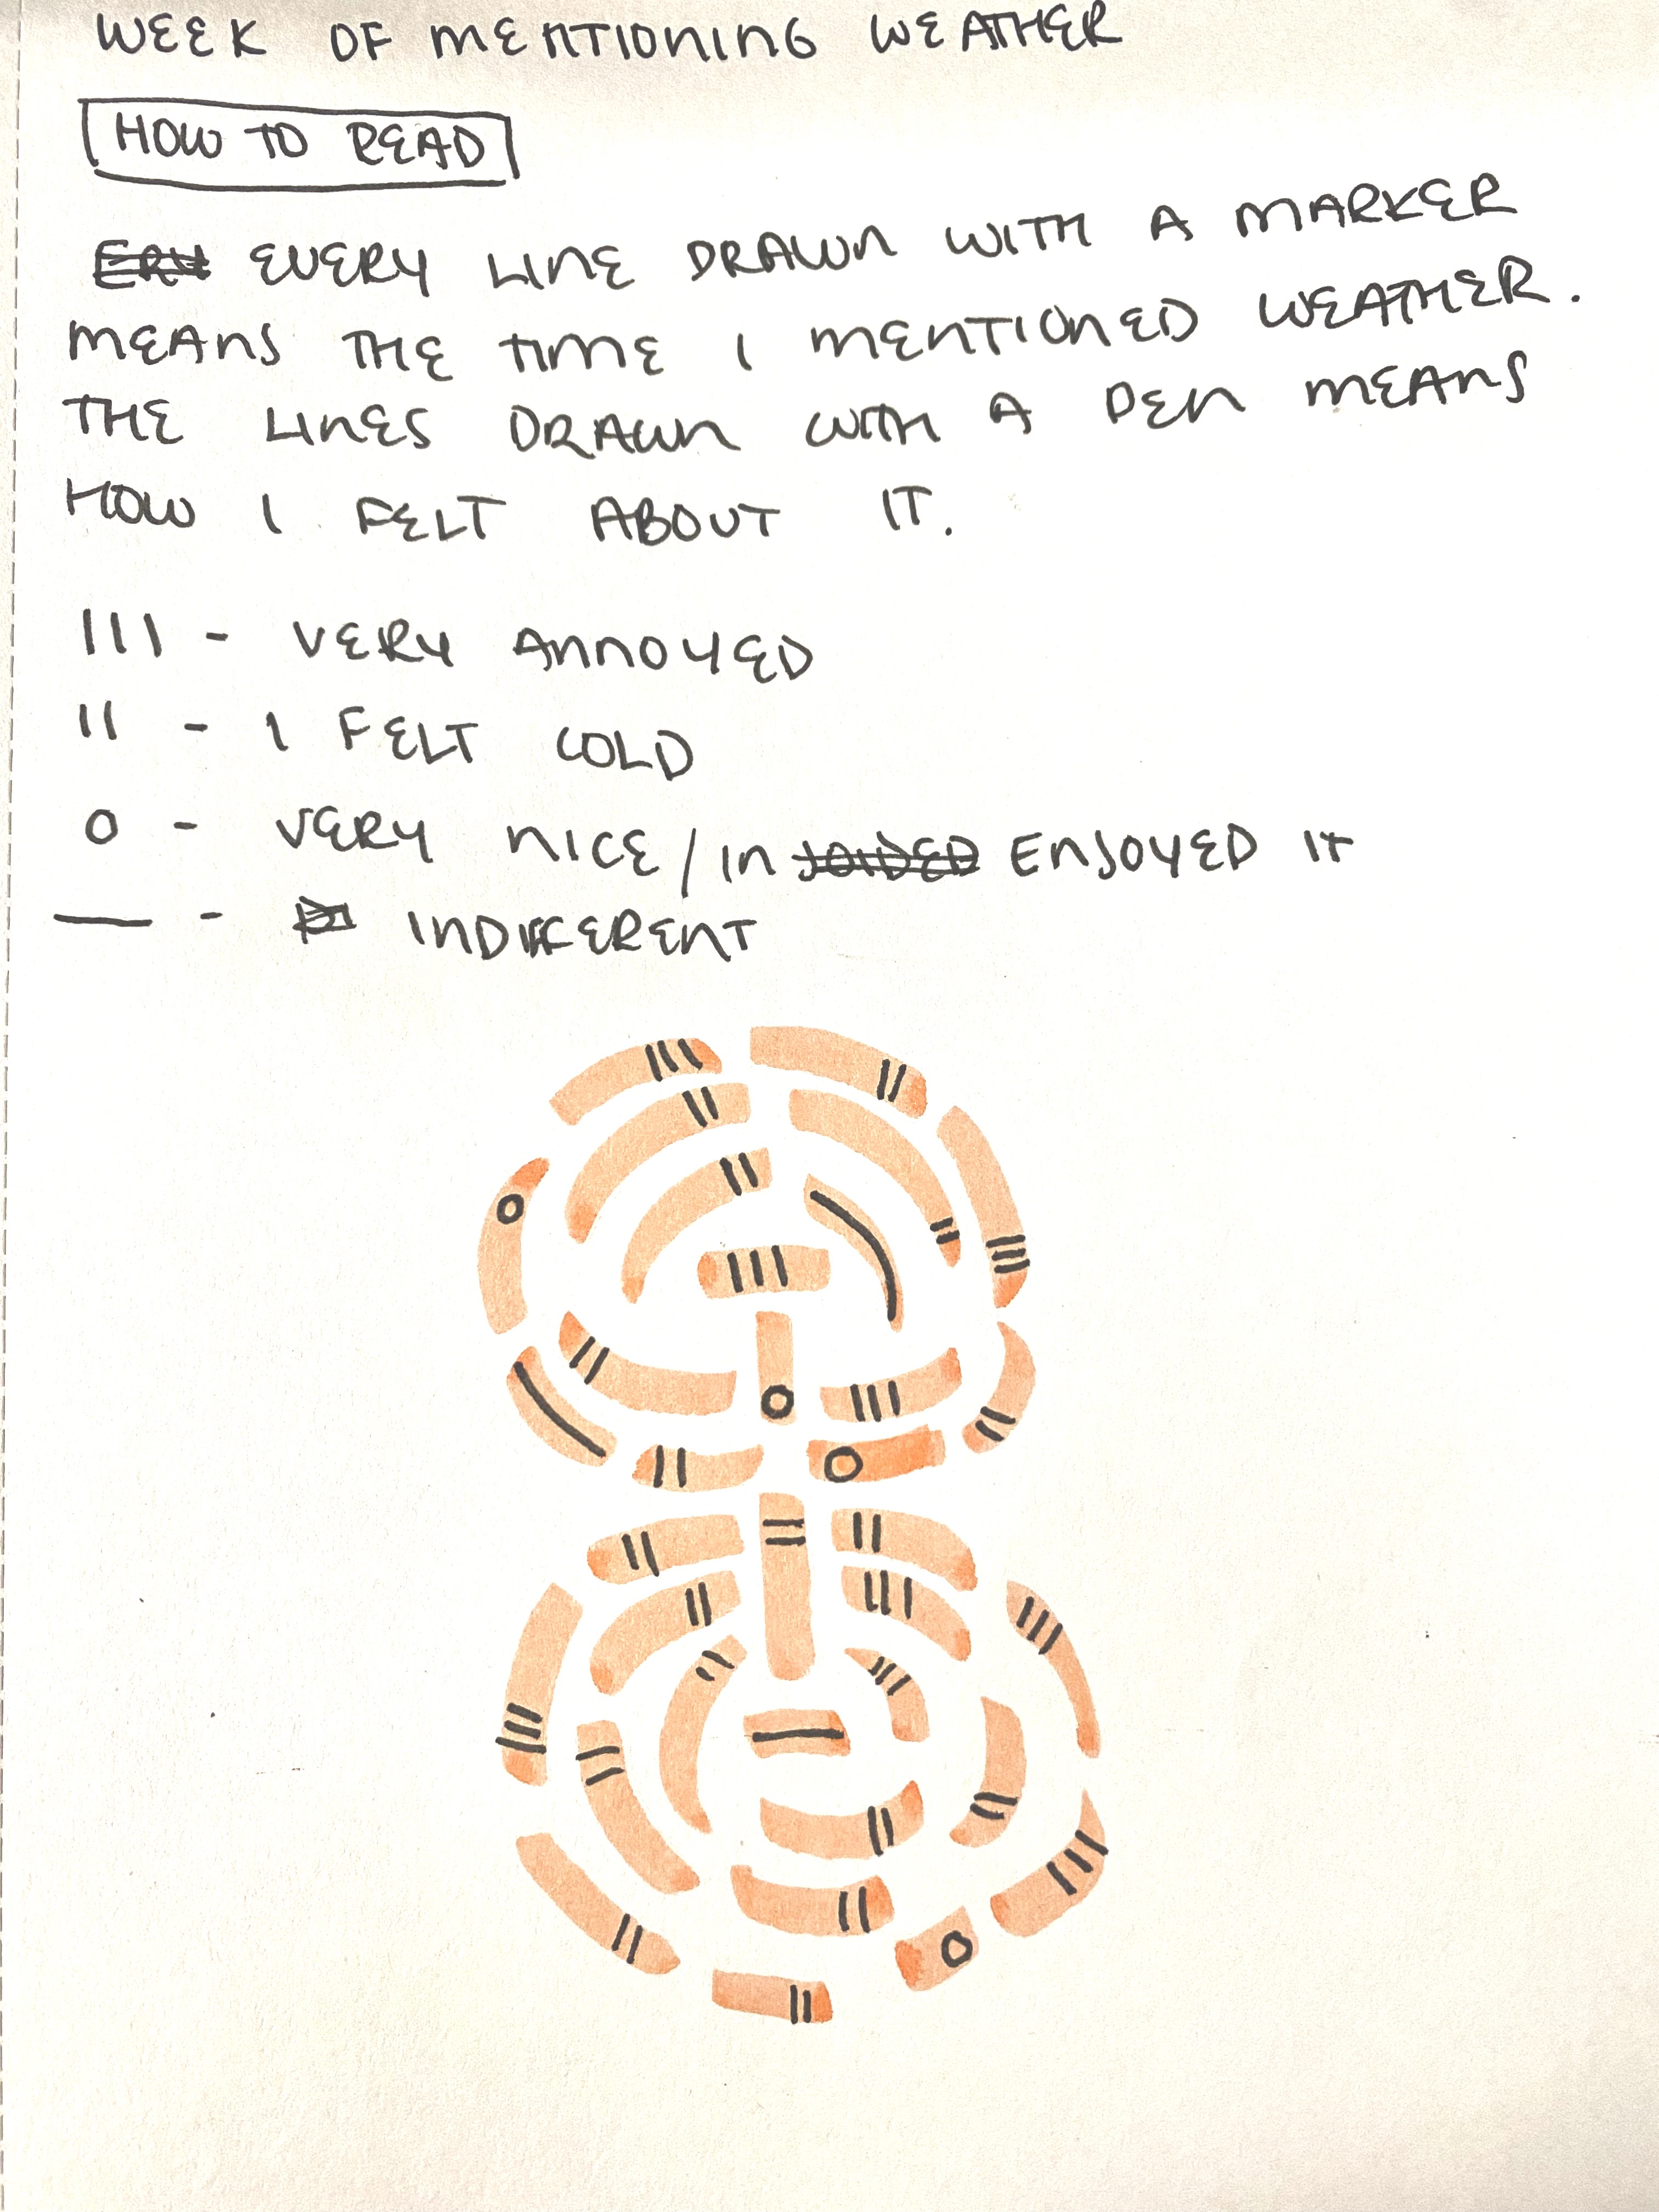 WEEK OF MENTIONING WEATHER
HOW TO READ
EVERY LINE DRAWN WITH A MARKER
MEANS THE TIME I MENTIONED WEATHER.
THE LINES DRAWN WITH A PEN MEANS
HOW I FELT ABOUT IT.
III - VERY ANNOYED
II - I FELT COLD
O - VERY NICE / IN ENJOYED IT
— - INDIFFERENT